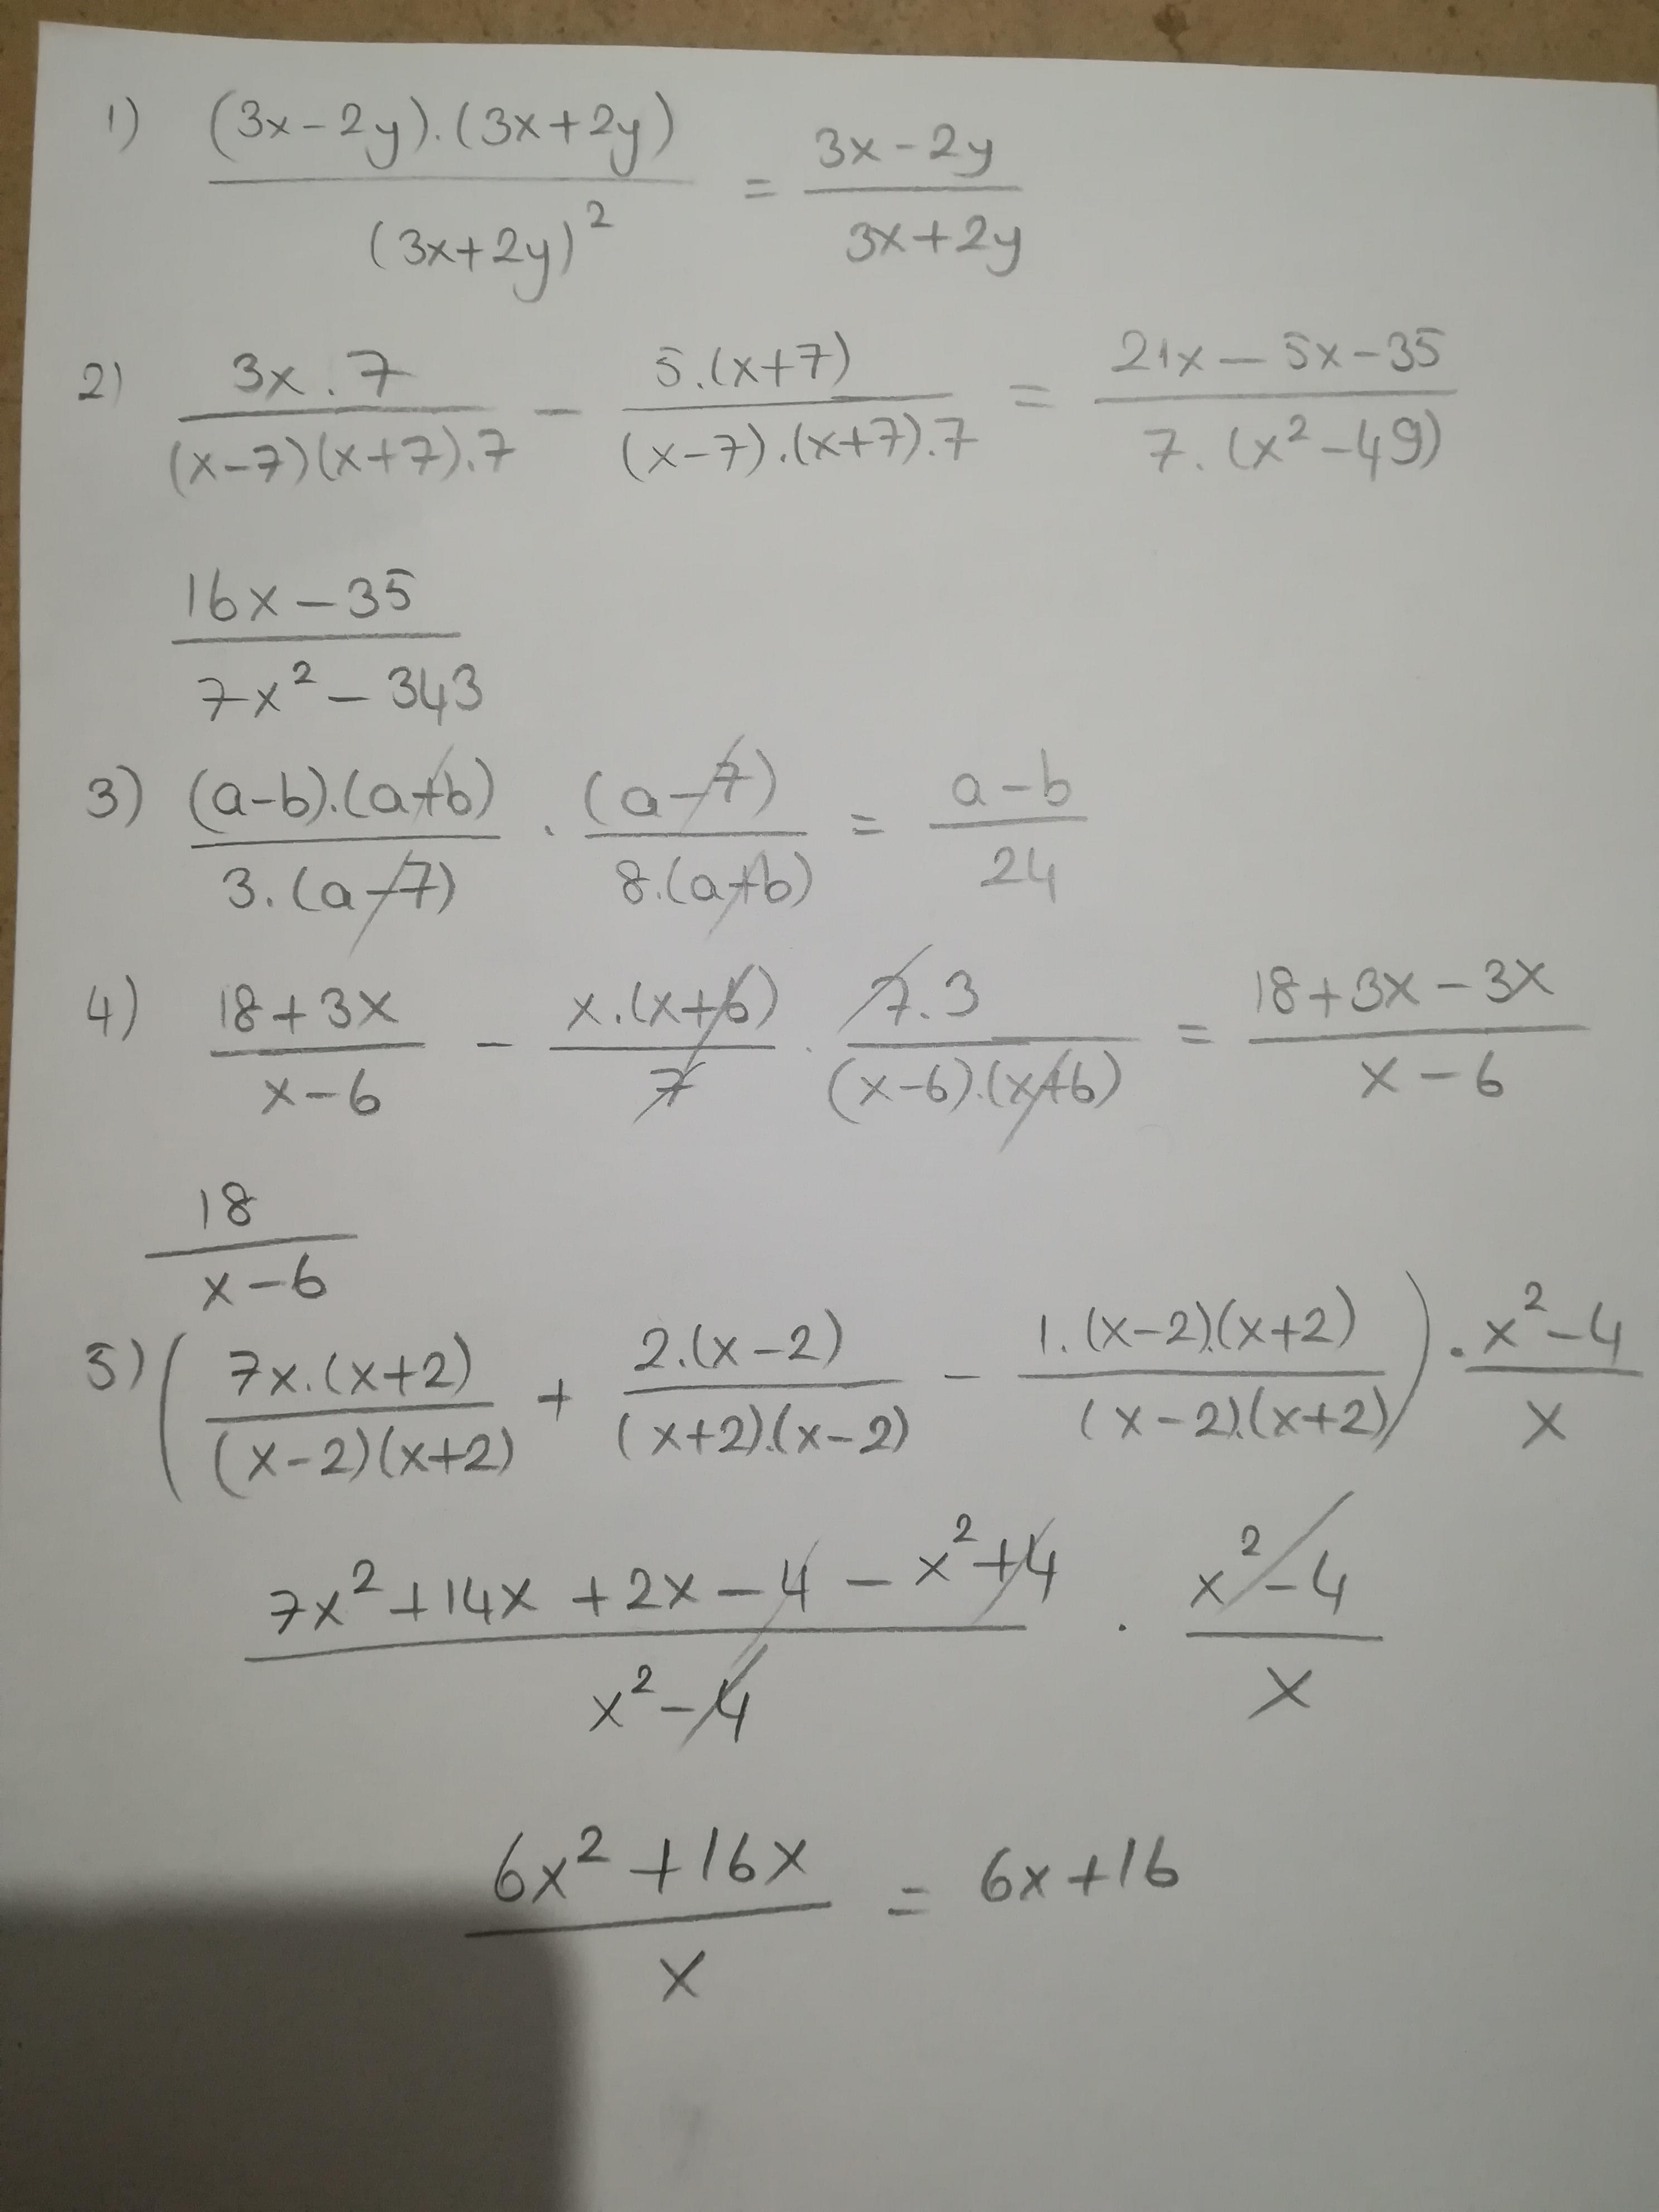 1) (3x-2y).(3x+2y) / (3x+2y)² = 3x-2y / 3x+2y
2) 3x.7 / (x-7)(x+7).7 - 5.(x+7) / (x-7).(x+7).7 = 21x-5x-35 / 7.(x²-49)
16x-35 / 7x²-343
3) (a-b).(a+b) / 3.(a-7) . (a-7) / 8.(a+b) = a-b / 24
4) 18+3x / x-6 - x.(x+6) / 7 . 7.3 / (x-6).(x+6) = 18+3x-3x / x-6
18 / x-6
5) ( 7x.(x+2) / (x-2)(x+2) + 2.(x-2) / (x+2).(x-2) - 1.(x-2).(x+2) / (x-2).(x+2) ) . x²-4 / x
7x²+14x+2x-4-x²+4 / x²-4 . x²-4 / x
6x²+16x / x = 6x+16